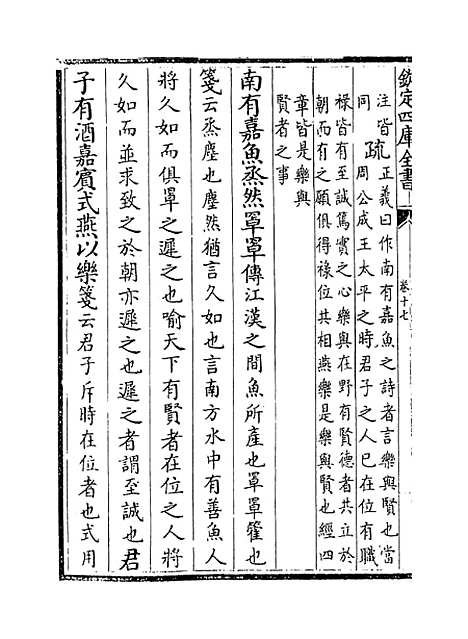 欽定四庫全書
卷十七
注皆
同
疏
正義曰作南有嘉魚之詩者言樂與賢也當
周公成王太平之時君子之人已在位有職
祿皆有至誠篤實之心樂與在野有賢德者共立於
朝而有之願俱得祿位共相燕樂是樂與賢也經四
章皆是樂與
賢者之事
南有嘉魚烝然罩罩傳江漢之間魚所產也罩罩籗也
箋云烝塵也塵然猶言久如也言南方水中有善魚人
將久如而俱罩之遲之也喻天下有賢者在位之人將
久如而並求致之於朝亦遲之也遲之者謂至誠也君
子有酒嘉賓式燕以樂箋云君子斥時在位者也式用